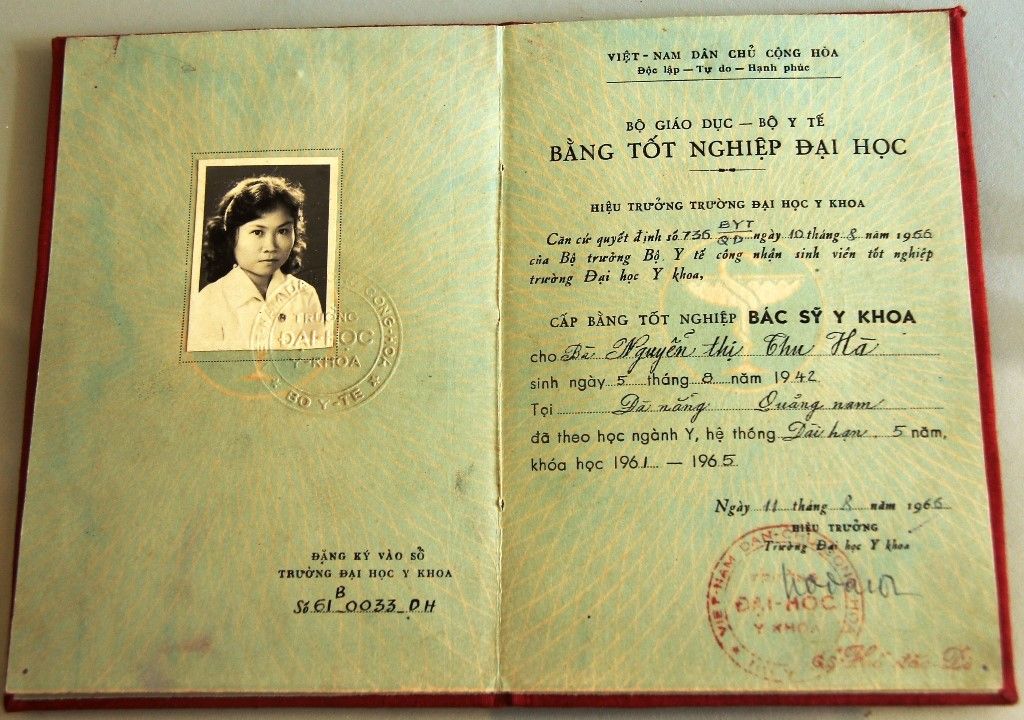 TRƯỜNG
ĐẠI-HỌC
Y-KHOA
BỘ Y-TẾ
ĐĂNG KÝ VÀO SỔ
TRƯỜNG ĐẠI HỌC Y KHOA
B
Số 61_0033_DH
VIỆT-NAM DÂN CHỦ CỘNG HÒA
Độc lập — Tự do — Hạnh phúc
BỘ GIÁO DỤC — BỘ Y TẾ
BẰNG TỐT NGHIỆP ĐẠI HỌC
HIỆU TRƯỞNG TRƯỜNG ĐẠI HỌC Y KHOA
Căn cứ quyết định số 736 BYT/QĐ ngày 10 tháng 8 năm 1966
của Bộ trưởng Bộ Y tế công nhận sinh viên tốt nghiệp
trường Đại học Y khoa,
CẤP BẰNG TỐT NGHIỆP BÁC SỸ Y KHOA
cho Bà Nguyễn thị Thu Hà
sinh ngày 5 tháng 8 năm 1942
Tại Đà nẵng Quảng nam
đã theo học ngành Y, hệ thống Dài hạn 5 năm,
khóa học 1961 — 1965
Ngày 11 tháng 8 năm 1966
HIỆU TRƯỞNG
Trường Đại học Y khoa
VIỆT-NAM DÂN-CHỦ CỘNG HÒA
TRƯỜNG
ĐẠI-HỌC
Y KHOA